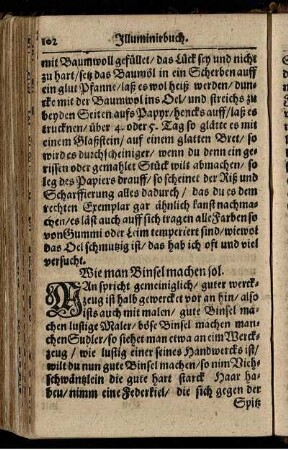 102 Illuminirbuch.
mit Baumwoll gefüllet/ das Lück sey und nicht
zu hart/ setz das Baumöl in ein Scherben auff
ein glut Pfanne/ laß es wol heiß werden/ dun-
cke mit der Baumwol ins Oel/ und streichs zu
beyden Seiten auffs Papyr/ hencks auff/ laß es
trucknen/ über 4. oder 5. Tag so glätte es mit
einem Glaßstein/ auf einem glatten Bret/ so
wird es durchscheiniger/ wenn du denn ein ge-
rissen oder gemahlet Stück wilt abmachen/ so
leg des Papiers drauff/ so scheinet der Riß und
Scharffierung alles dadurch/ das du es dem
rechten Exemplar gar ähnlich kanst nachma-
chen/ es läst auch auff sich tragen alle Farben so
von Gummi oder Leim temperiert sind/ wiewol
das Oel schmutzig ist/ das hab ich oft und viel
versucht.
Wie man Binsel machen sol.
MAn spricht gemeiniglich/ guter werck-
zeug ist halb gewercket vor an hin/ also
ists auch mit malen/ gute Binsel ma-
chen lustige Maler/ böse Binsel machen man-
chen Sudler/ so siehet man etwa an eim Werck-
zeug/ wie lustig einer seines Handwercks ist/
wilt du nun gute Binsel machen/ so nim Vich-
schwäntzlein die gute hart starck Haar ha-
ben/ nimm eine Federkiel/ die sich gegen der
Spitz